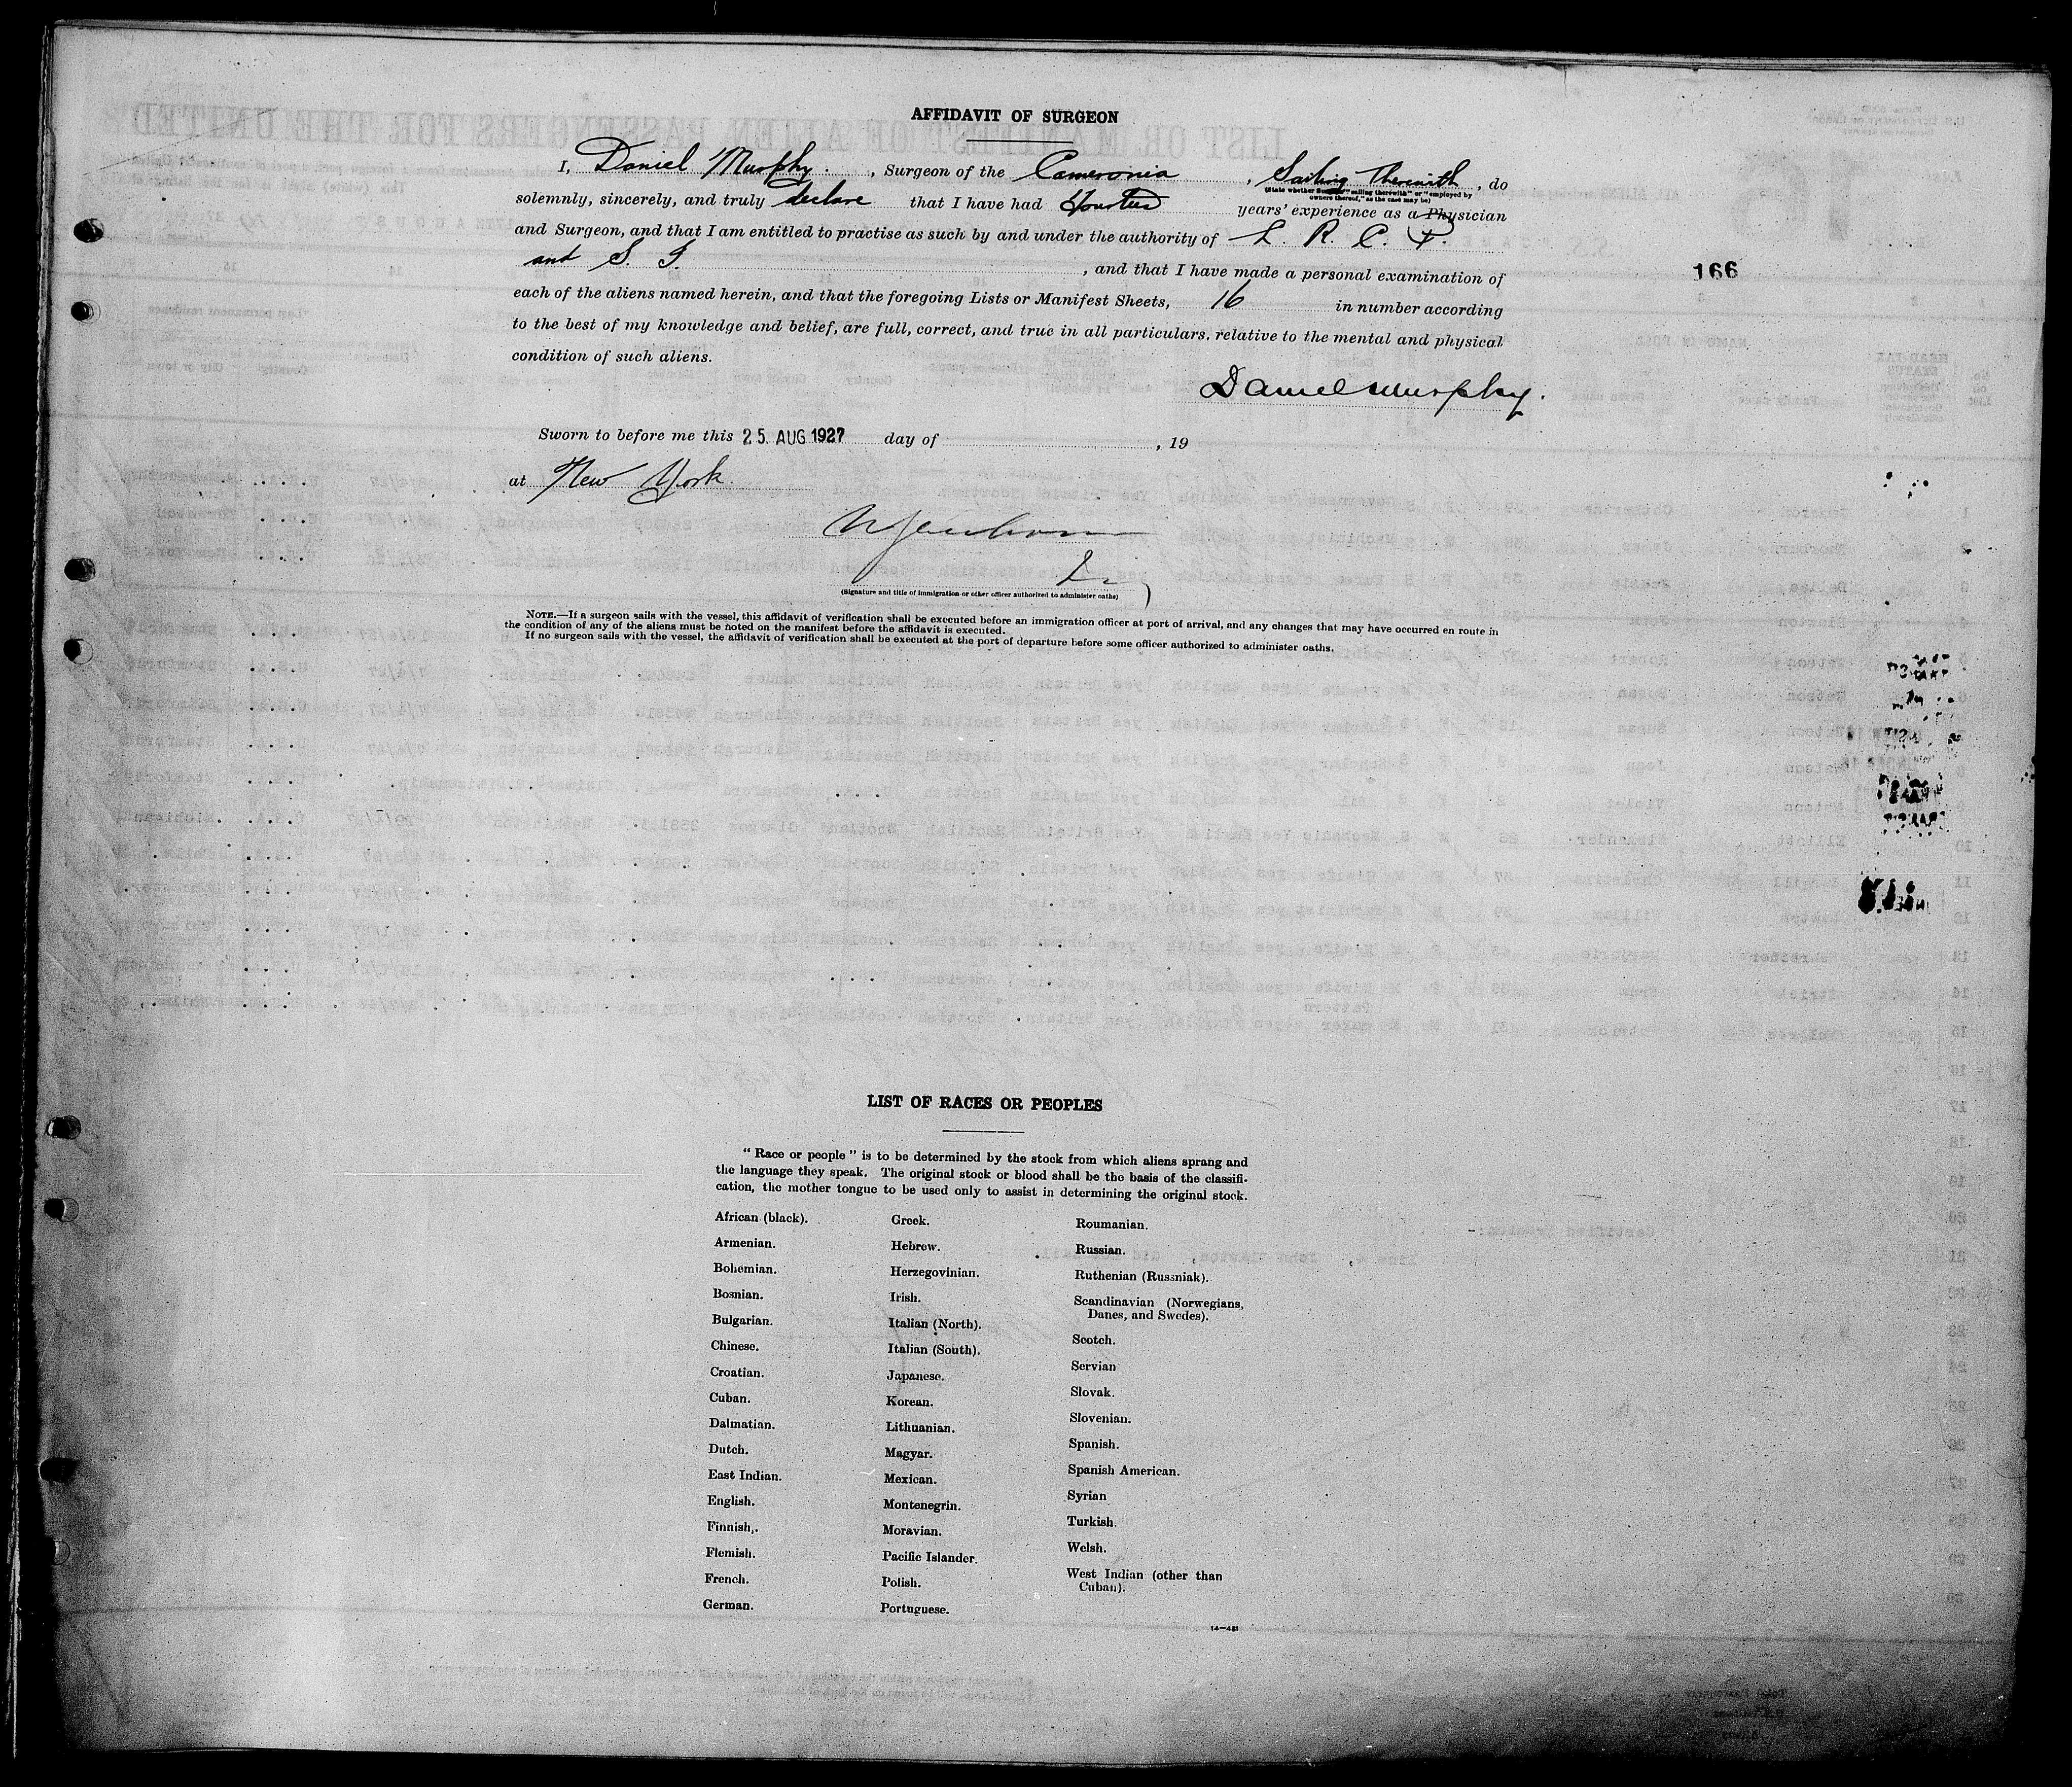 AFFIDAVIT OF SURGEON
I, Daniel Murphy. , Surgeon of the Cameronia , Sailing Therewith , do
(State whether "sailing therewith" or "employed by
owners thereof," as the case may be)
solemnly, sincerely, and truly declare that I have had years' experience as a Physician
and Surgeon, and that I am entitled to practise as such by and under the authority of L. R. C. P.
and S. I. , and that I have made a personal examination of
166
each of the aliens named herein, and that the foregoing Lists or Manifest Sheets, 16 in number according
to the best of my knowledge and belief, are full, correct, and true in all particulars, relative to the mental and physical
condition of such aliens.
Daniel Murphy.
Sworn to before me this 25. AUG 1927 day of , 19
at New York.
(Signature and title of immigration or other officer authorized to administer oaths)
NOTE.—If a surgeon sails with the vessel, this affidavit of verification shall be executed before an immigration officer at port of arrival, and any changes that may have occurred en route in
the condition of any of the aliens must be noted on the manifest before the affidavit is executed.
If no surgeon sails with the vessel, the affidavit of verification shall be executed at the port of departure before some officer authorized to administer oaths.
LIST OF RACES OR PEOPLES
"Race or people" is to be determined by the stock from which aliens sprang and
the language they speak. The original stock or blood shall be the basis of the classifi-
cation, the mother tongue to be used only to assist in determining the original stock.
African (black).
Armenian.
Bohemian.
Bosnian.
Bulgarian.
Chinese.
Croatian.
Cuban.
Dalmatian.
Dutch.
East Indian.
English.
Finnish.
Flemish.
French.
German.
Greek.
Hebrew.
Herzegovinian.
Irish.
Italian (North).
Italian (South).
Japanese.
Korean.
Lithuanian.
Magyar.
Mexican.
Montenegrin.
Moravian.
Pacific Islander.
Polish.
Portuguese.
Roumanian.
Russian.
Ruthenian (Russniak).
Scandinavian (Norwegians,
Danes, and Swedes).
Scotch.
Servian
Slovak.
Slovenian.
Spanish.
Spanish American.
Syrian
Turkish.
Welsh.
West Indian (other than
Cuban).
14—481